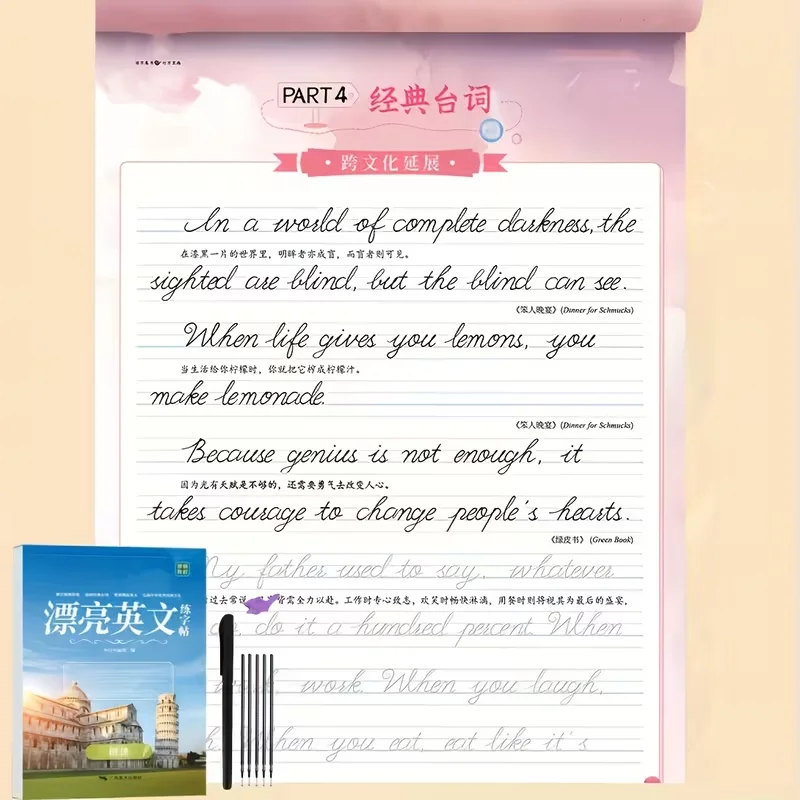 PART 4 经典台词
·跨文化延展·
In a world of complete darkness, the
在漆黑一片的世界里，明眸者亦成盲，而盲者则可见。
sighted are blind, but the blind can see.
《笨人晚宴》(Dinner for Schmucks)
When life gives you lemons, you
当生活给你柠檬时，你就把它榨成柠檬汁。
make lemonade.
《笨人晚宴》(Dinner for Schmucks)
Because genius is not enough, it
因为光有天赋是不够的，还需要勇气去改变人心。
takes courage to change people's hearts.
《绿皮书》 (Green Book)
My father used to say, whatever
过去常说，皆需全力以赴。工作时专心致志，欢笑时畅快淋漓，用餐时则将视其为最后的盛宴，
do it a hundred percent When
work. When you laugh,
When you eat, eat like it's
漂亮英文
练字帖